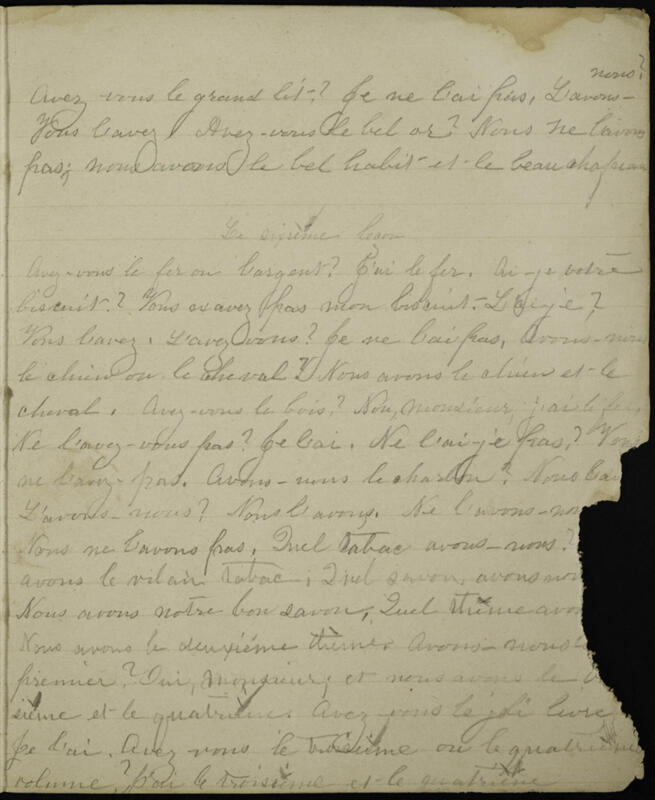 nous?
Avez vous le grand lit? Je ne l'ai pas. L'avons-
Vous l'avez. Avez-vous le bel or? Nous ne l'avons
pas; nous avons le bel habit et le beau chapeau
Le sixième leçon
Avez-vous le fer ou l'argent? J'ai le fer. Ai-je votre
biscuit? Vous n'avez pas mon biscuit. L'ai-je?
Vous l'avez. L'avez vous? Je ne l'ai pas. Avons-nous
le chien ou le cheval? Nous avons le chien et le
cheval. Avez-vous le bois? Non, monsieur, j'ai le fer.
Ne l'avez-vous pas? Je l'ai. Ne l'ai-je pas? Vous
ne l'avez pas. Avons-nous le charbon? Nous l'av
L'avons-nous? Nous l'avons. Ne l'avons-nou
Nous ne l'avons pas. Quel tabac avons-nous?
avons le vilain tabac. Quel savon avons nou
Nous avons notre bon savon. Quel thème avo
Nous avons le deuxiéme thème. Avons-nous
premier? Oui, monsieur; et nous avons le
sième et le quatrième. Avez vous le joli livre
Je l'ai. Avez vous le troisième ou le quatrième
volume? J'ai le troisième et le quatrième